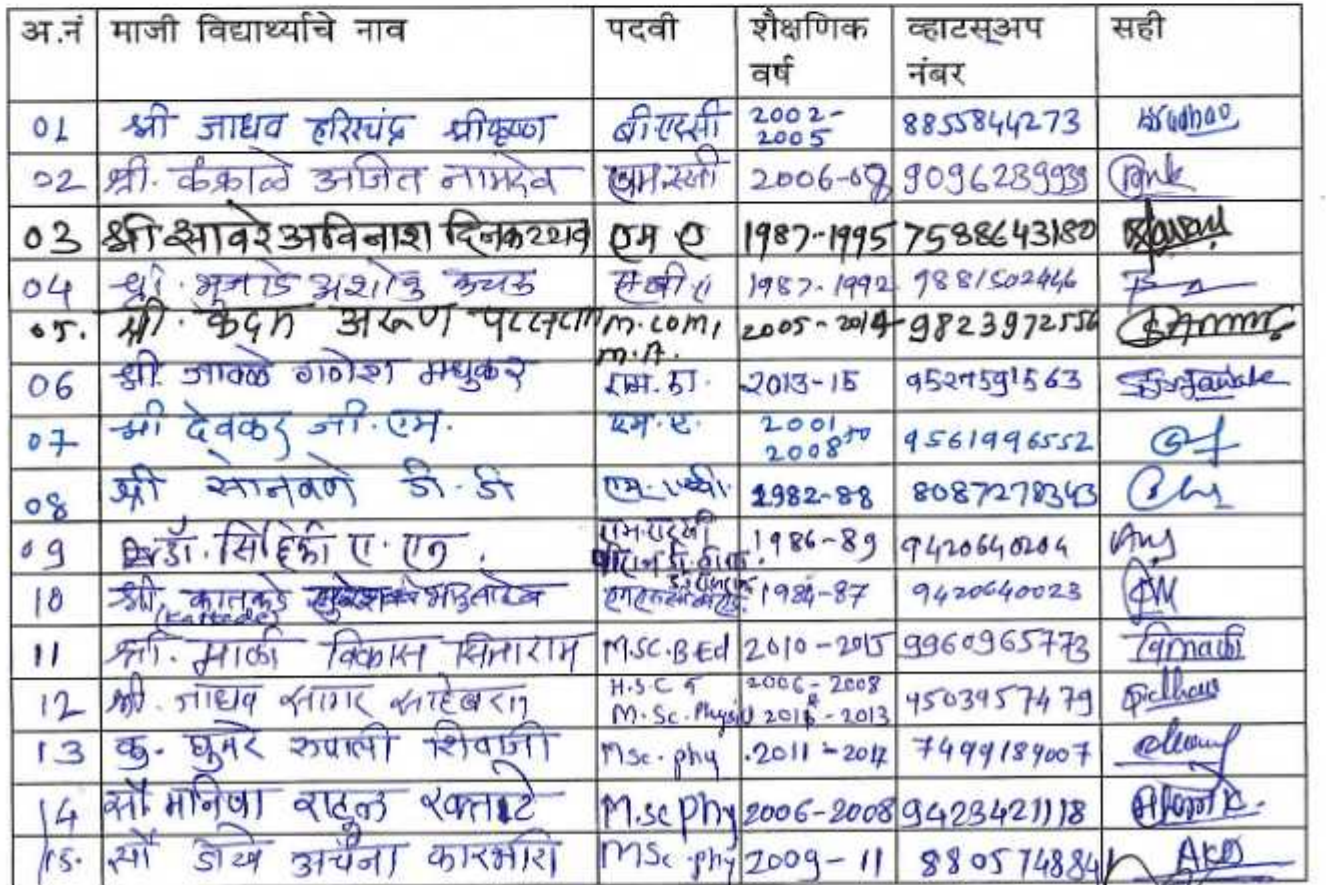 अ.नं माजी विद्यार्थ्याचे नाव पदवी शैक्षणिक वर्ष व्हाटस्अप नंबर सही
01 श्री जाधव हरिश्चंद्र श्रीकृष्ण बीएस्सी 2002-2005 8855844273
02 श्री. अजित नामदेव एम.स्सी 2006-08 9096239939
03 श्री आवरे अविनाश दिनकरराव एम ए 1987-1995 7588643180
04 श्री. भुजाडे अशोक कचरू 1987-1992 9881502446
05. श्री. कदम अरूण M.COM, M.A. 2005-2014 9823972556
06 श्री. जावळे गणेश मधुकर एम.ए. 2013-15 9527591563
07 श्री देवकर जी.एम. एम.ए. 2001 to 2008 9561996552
08 श्री सोनवणे डी.डी 1982-88 8087278343
09 डॉ. सिद्दिकी ए.एन. एम.एस्सी 1986-89 9420640204
10 श्री. कातकडे (Katkade) 1984-87 9420640023
11 श्री. माळी विकास सिताराम M.SC.B.Ed 2010-2015 9960965773
12 श्री. जाधव सागर साहेबराव H.S.C M.Sc.Physic 2006-2008 2011-2013 9503957479
13 कु. घुमरे रुपाली शिवाजी Msc.phy 2011-2012 7499189007
14 सौ मनिषा राहुल रक्ताटे M.sc Phy 2006-2008 9423421118
15. सौ डोखे अर्चना कारभारी MSc.phy 2009-11 8805748841